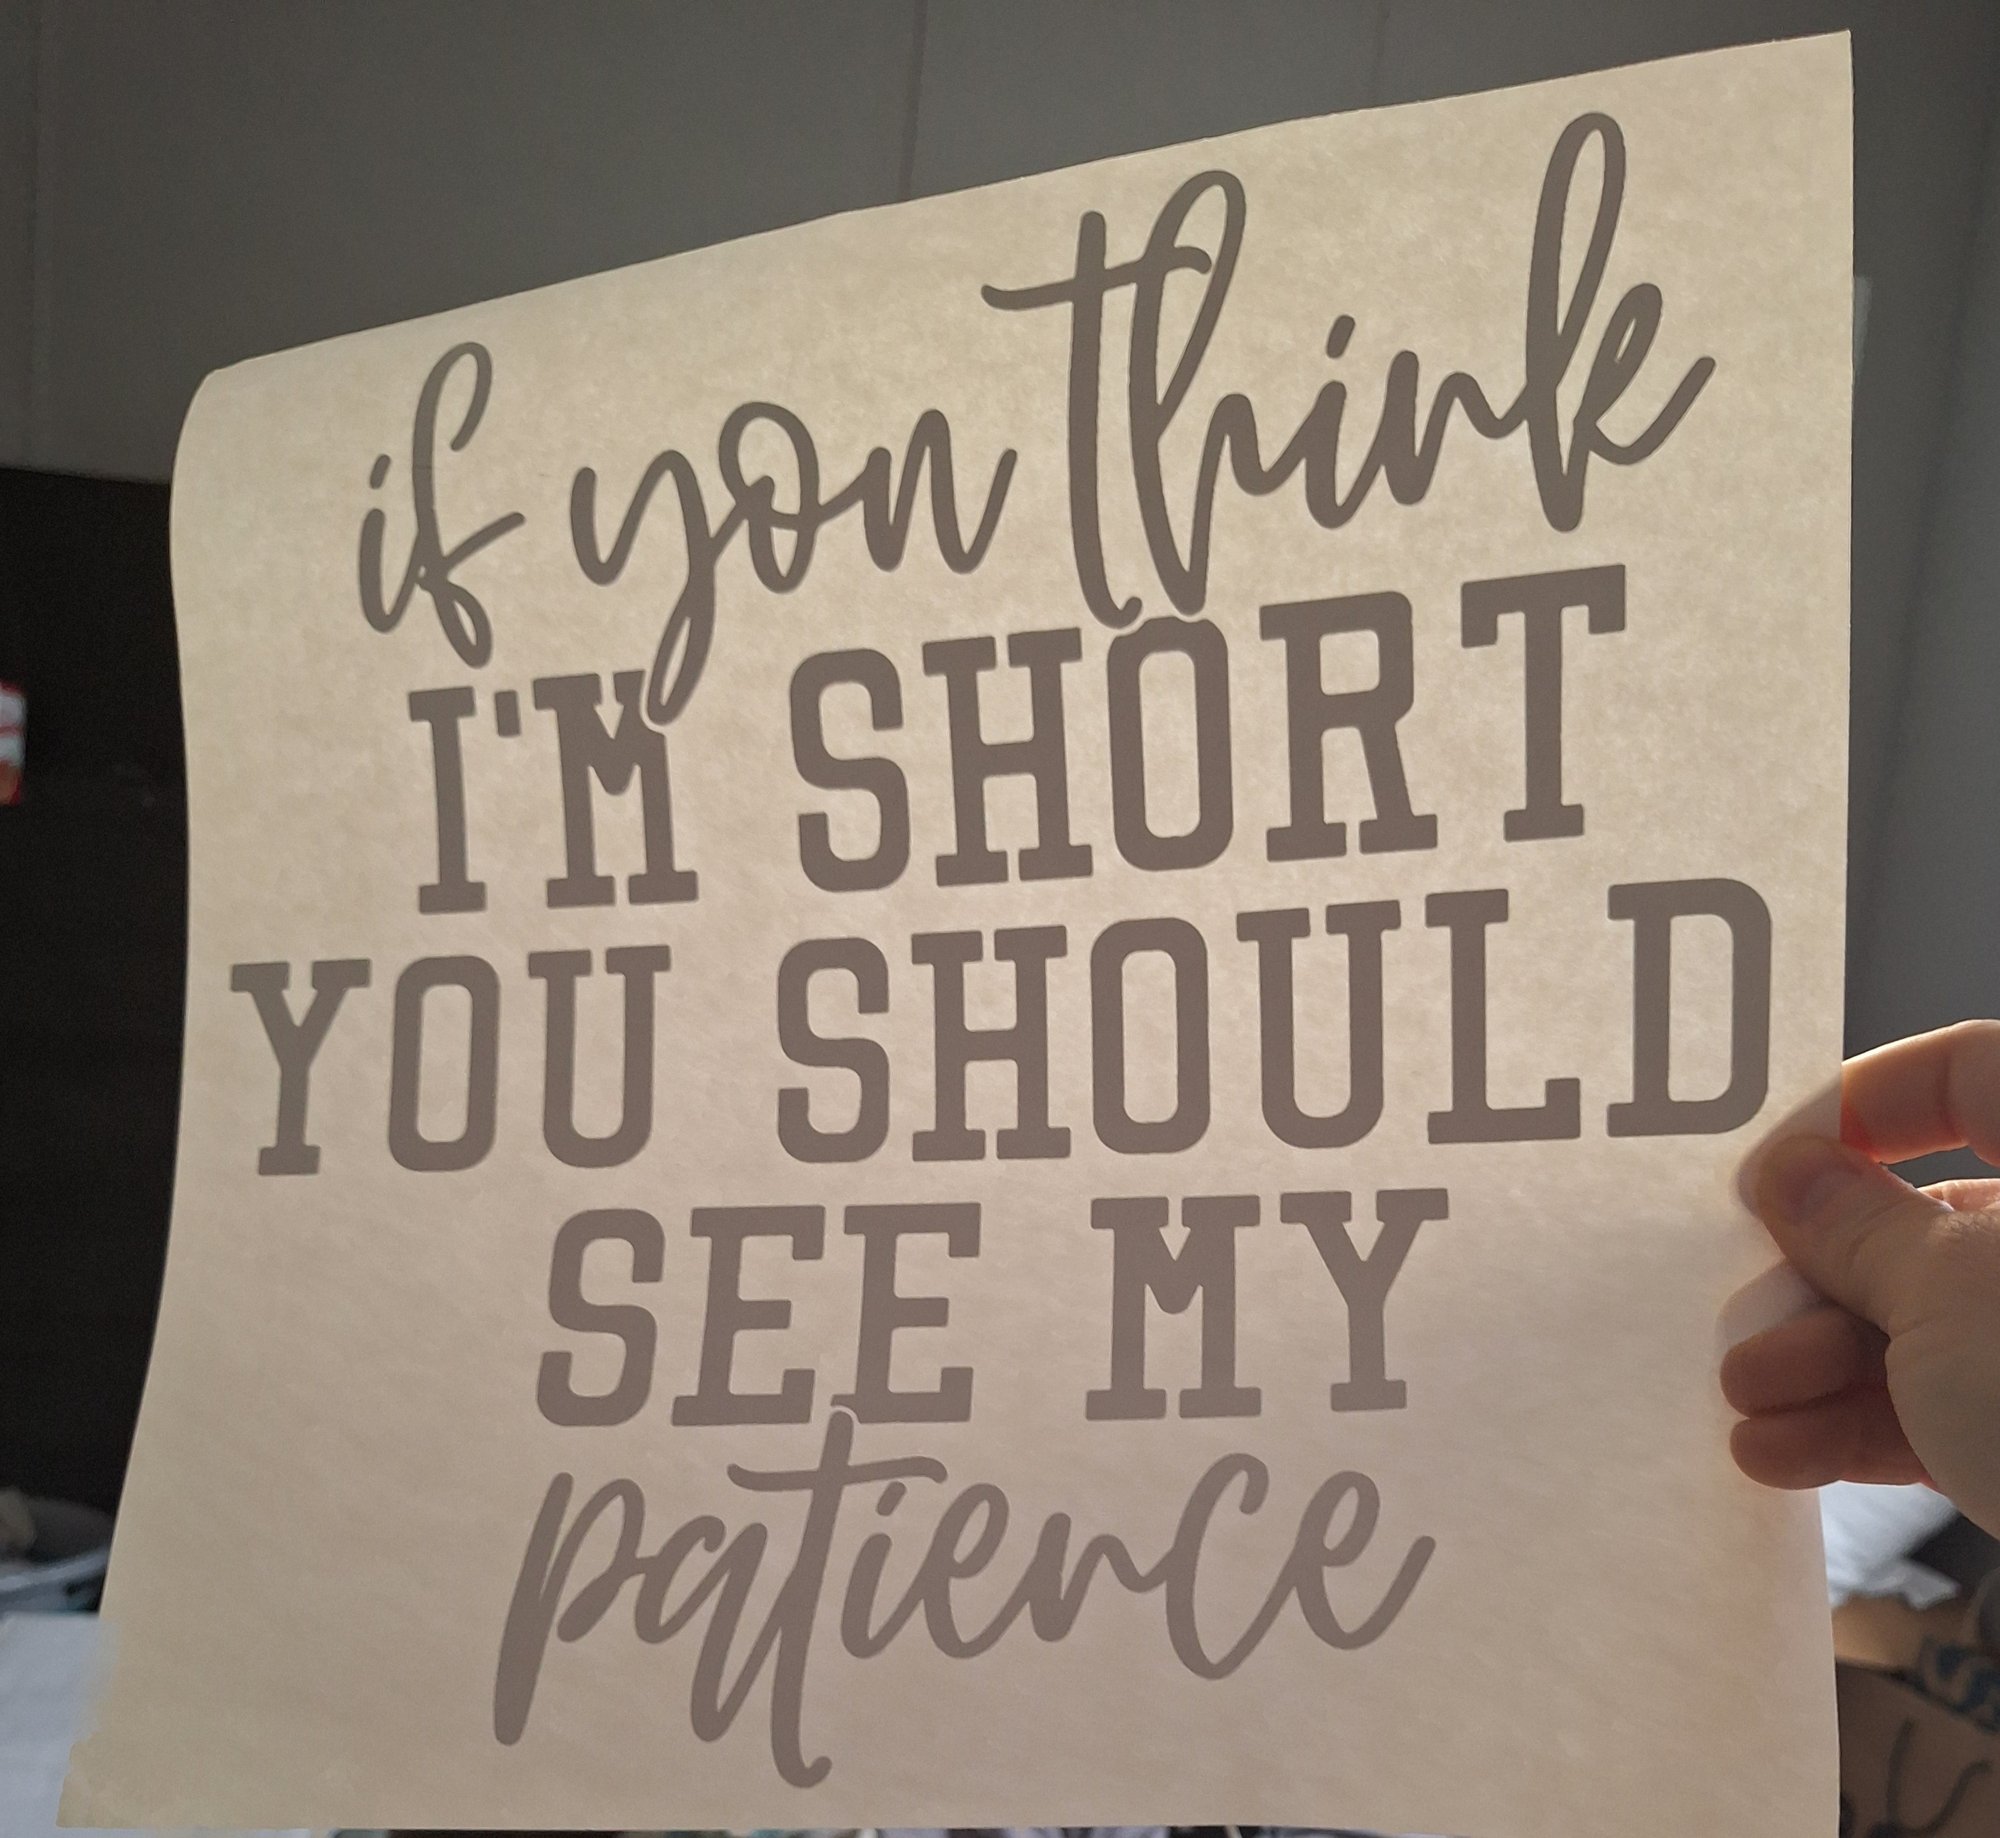 if you think
I'M SHORT
YOU SHOULD
SEE MY
patience